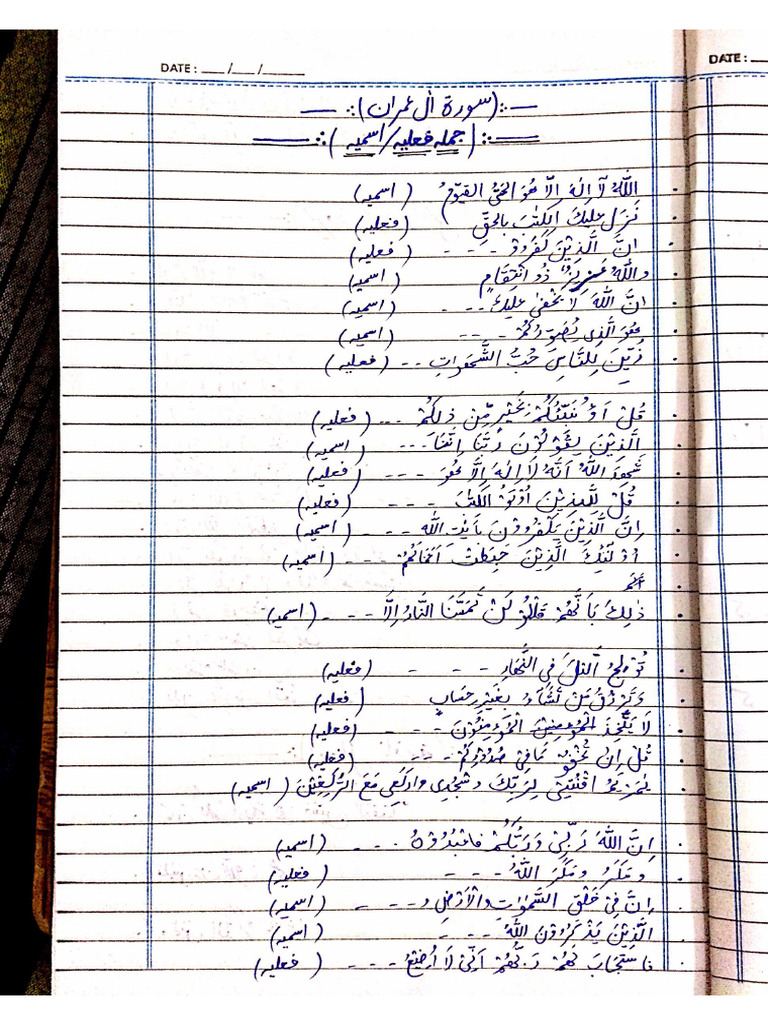 DATE : ___/___/_____
DATE : __
(سورة اٰل عمران)
(جمله فعليه/اسميه)
اَللّٰهُ لَآ اِلٰهَ اِلَّا هُوَ الحَىُّ القَيُّوْمُ (اسميه)
نَزَّلَ عَلَيْكَ الْكِتٰبَ بِالحَقِّ (فعليه)
اِنَّ الَّذِيْنَ كَفَرُوْا - - - (فعليه)
واللّٰهُ عَزِيْزٌ ذُو انْتِقَامٍ (اسميه)
اِنَّ اللّٰهَ لَا يَخْفٰى عَلَيْهِ - - - (اسميه)
هُوَ الَّذِى يُصَوِّرُكُمْ - - - (اسميه)
زُيِّنَ لِلنَّاسِ حُبُّ الشَّهَوَاتِ - - (فعليه)
قُلْ اَؤُنَبِّئُكُمْ بِخَيْرٍ مِّنْ ذٰلِكُمْ - - - (فعليه)
اَلَّذِيْنَ يَقُوْلُوْنَ رَبَّنَا اِنَّنَا - - - (اسميه)
شَهِدَ اللّٰهُ اَنَّهٗ لَا اِلٰهَ اِلَّا هُوَ - - - (فعليه)
قُلْ لِّلَّذِيْنَ اُوْتُوا الْكِتٰبَ - - - - (فعليه)
اِنَّ الَّذِيْنَ يَكْفُرُوْنَ بِاٰيٰتِ اللّٰه - - - (اسميه)
اُوْلٰئِكَ الَّذِيْنَ حَبِطَتْ اَعْمَالُهُمْ - - - - (اسميه)
ذٰلِكَ بِاَنَّهُمْ قَالُوْا لَنْ تَمَسَّنَا النَّارُ اِلَّا - - - (اسميه)
تُوْلِجُ الَّيْلَ فِى النَّهَارِ - - - - (فعليه)
وَتَرْزُقُ مَنْ تَشَآءُ بِغَيْرِ حِسَابٍ (فعليه)
لَا يَتَّخِذِ الْمُؤْمِنُوْنَ - - - - (فعليه)
قُلْ اِنْ تُخْفُوْا مَا فِىْ صُدُوْرِكُمْ - - - (فعليه)
يٰمَرْيَمُ اقْنُتِىْ لِرَبِّكِ وسْجُدِى واركَعِى مَعَ الرّٰكِعِيْنَ (اسميه)
اِنَّ اللّٰهَ رَبِّىْ وَرَبُّكُمْ فاعْبُدُوْهُ - - - - (اسميه)
ومَكَرُوْ ومَكَرَ اللّٰهُ - - - - (فعليه)
اِنَّ فِىْ خَلْقِ السَّمٰوٰتِ والْاَرْضِ و - - - (اسميه)
اَلَّذِيْنَ يَذْكُرُوْنَ اللّٰهَ - - - - (اسميه)
فاسْتَجَابَ لَهُمْ رَبُّهُمْ اَنِّىْ لَا اُضِيْعُ - - - - (فعليه)